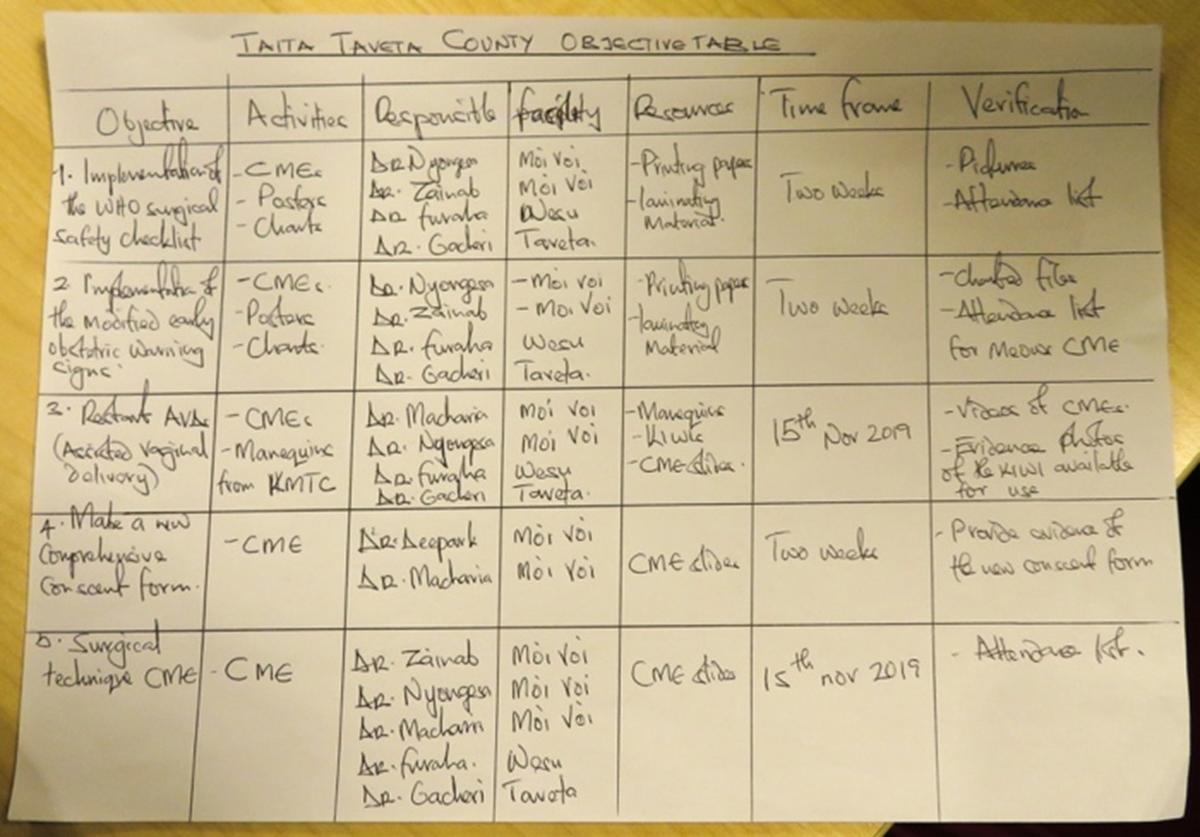 TAITA TAVETA COUNTY OBJECTIVE TABLE
Objective Activities Responsible facility Resources Time frame Verification
1. Implementation of
the WHO surgical
safety checklist
- CMEs
- Posters
- Charts
DR. Nyongesa
DR. Zainab
DR furaha
DR. Gacheri
Moi Voi
Moi Voi
Wesu
Taveta.
- Printing paper
- laminating
Material.
Two weeks
- Pictures
- Attendance list
2. Implementation of
the modified early
obstetric warning
signs.
- CMEs.
- Posters
- Charts.
DR. Nyongesa
DR. Zainab
DR. furaha
DR. Gacheri
- Moi Voi
- Moi Voi
Wesu
Taveta.
- Printing paper
- laminating
Material
Two weeks
- Charted files
- Attendance list
for Meows CME
3. Restart AVDs
(Assisted vaginal
delivery)
- CMEs
- Manequins
from KMTC
DR. Macharia
DR. Nyongesa
DR. furaha
DR. Gacheri
Moi Voi
Moi Voi
Wesu
Taveta.
- Manequins
- KIWIs
- CME slides.
15th Nov 2019
- Videos of CMEs.
- Evidence photos
of the KIWI available
for use
4. Make a new
Comprehensive
Conscent form.
- CME
DR. Deepark
DR. Macharia
Moi Voi
Moi Voi
CME slides
Two weeks
- Provide evidence of
the new conscent form
5. Surgical
technique CME
- CME
DR. Zainab
DR. Nyongesa
DR. Macharia
DR. furaha.
DR. Gacheri
Moi Voi
Moi Voi
Moi Voi
Wesu
Taveta
CME slides
15th nov 2019
- Attendance list.